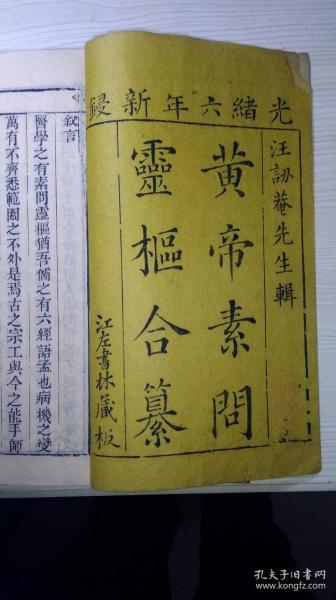 光緒六年新鋟
汪訒菴先生輯
黃帝素問
靈樞合纂
江左書林藏板
叙言
醫學之有素問靈樞猶吾儒之有六經語孟也病機之變
萬有不齊悉範圍之不外是焉古之宗工與今之能手師
孔夫子旧书网